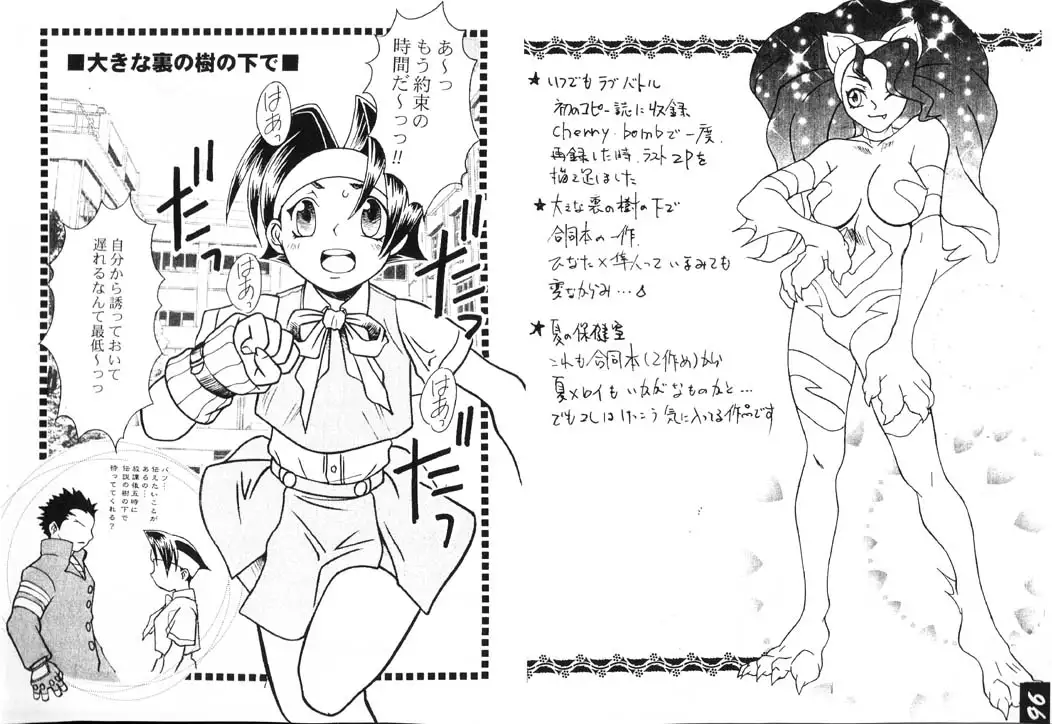 ■大きな裏の樹の下で■
あ〜っ
もう約束の
時間だ〜っっ!!
はぁっ
はぁっ
はぁっ
だっ
だっ
だっ
自分から誘っておいて
遅れるなんて最低〜っっ
バツ…
伝えたいことが
あるの…
放課後五時に
伝説の樹の下で
待っててくれる?
★いつでもラブバトル
初のコピー誌に収録
cherry・bombで一度、
再録した時、ラスト2Pを
描き足しました
★大きな裏の樹の下で
合同本の一作、
ひなた×隼人って いまみても
変なからみ…
★夏の保健室
これも合同本(2作め)から
夏×ロイもいかがなものかと…
でもコレはけっこう気に入ってる作品です
96